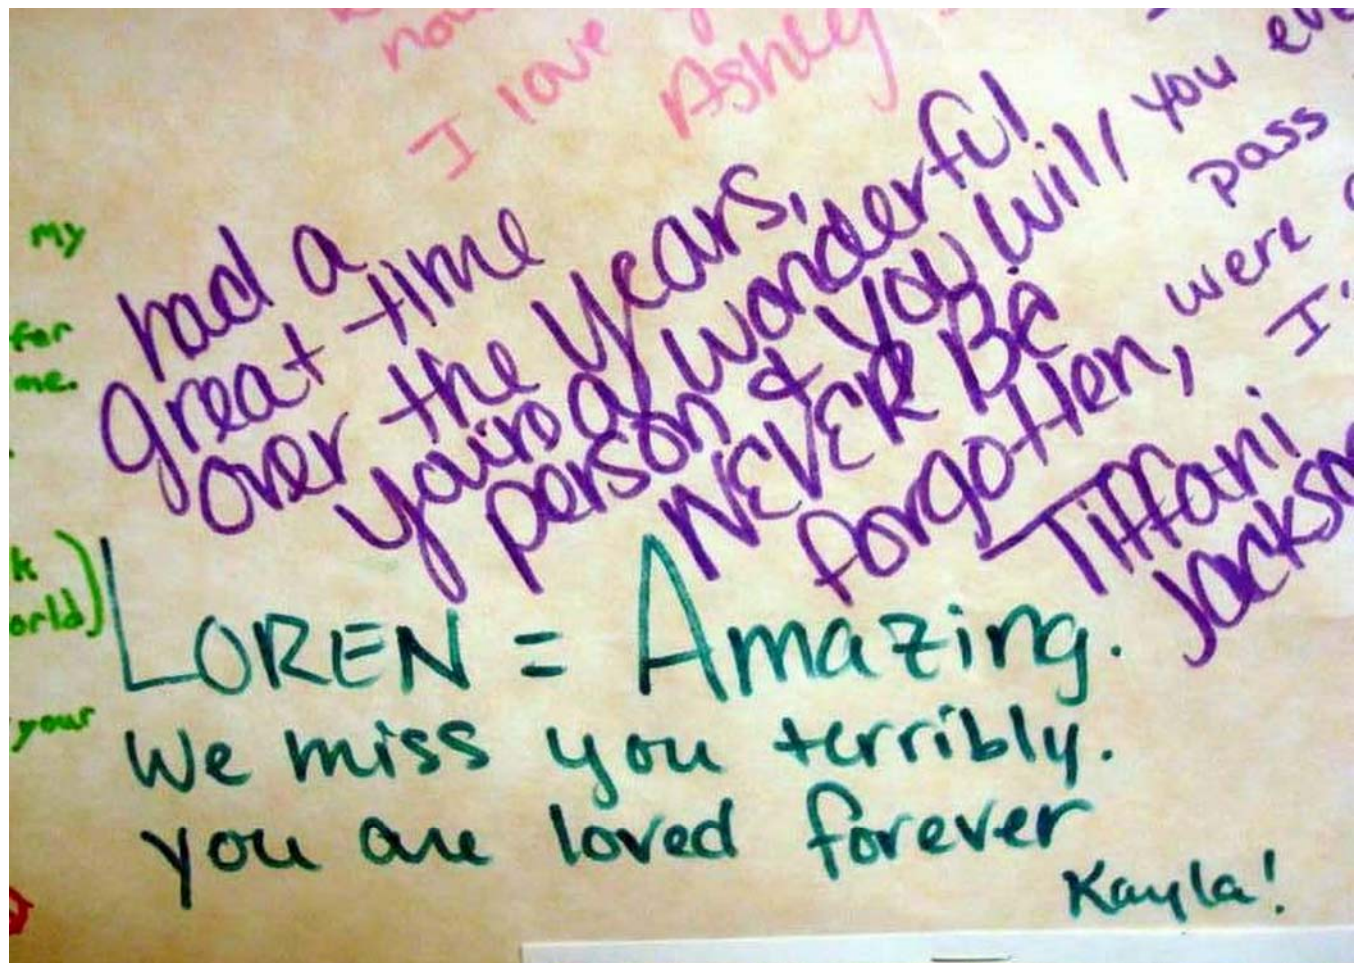 I love
Ashley
had a
great time
over the years,
you're a wonderful
person & you will
NEVER BE
forgotten,
Tiffani
Jackson
you
pass
were
my
for
me.
your
LOREN = Amazing.
We miss you terribly.
you are loved forever
Kayla!